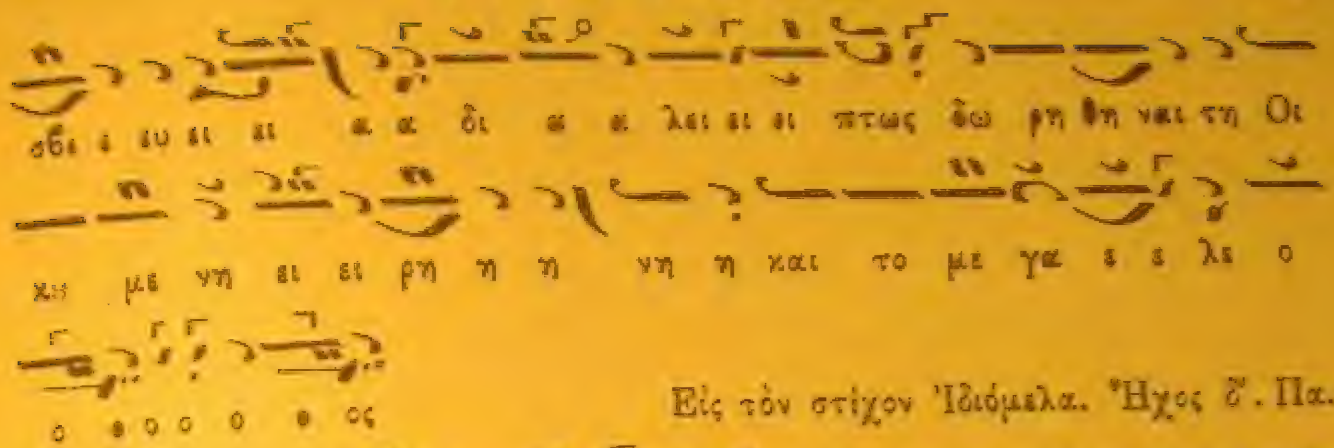 σβε ε ευ ει ει α α δι α α λει ει ει πτως δω ρη θη ναι τη Οι
κυ με νη ει ει ρη η η νη η και το με γα ε ε λε ο
ο ο ο ο ο ο ος
Εἰς τὸν στίχον Ἰδιόμελα. Ἦχος δ΄. Πα.